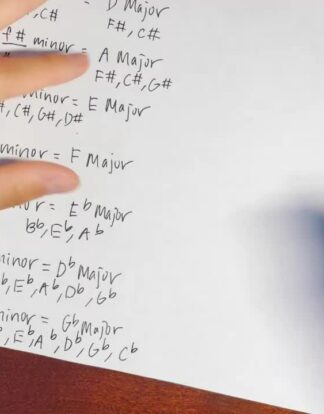 = D Major
, C#   F#, C#
f# minor = A Major
F#, C#, G#
minor = E Major
, C#, G#, D#
minor = F Major
= E♭ Major
B♭, E♭, A♭
minor = D♭ Major
, E♭, A♭, D♭, G♭
minor = G♭ Major
, E♭, A♭, D♭, G♭, C♭